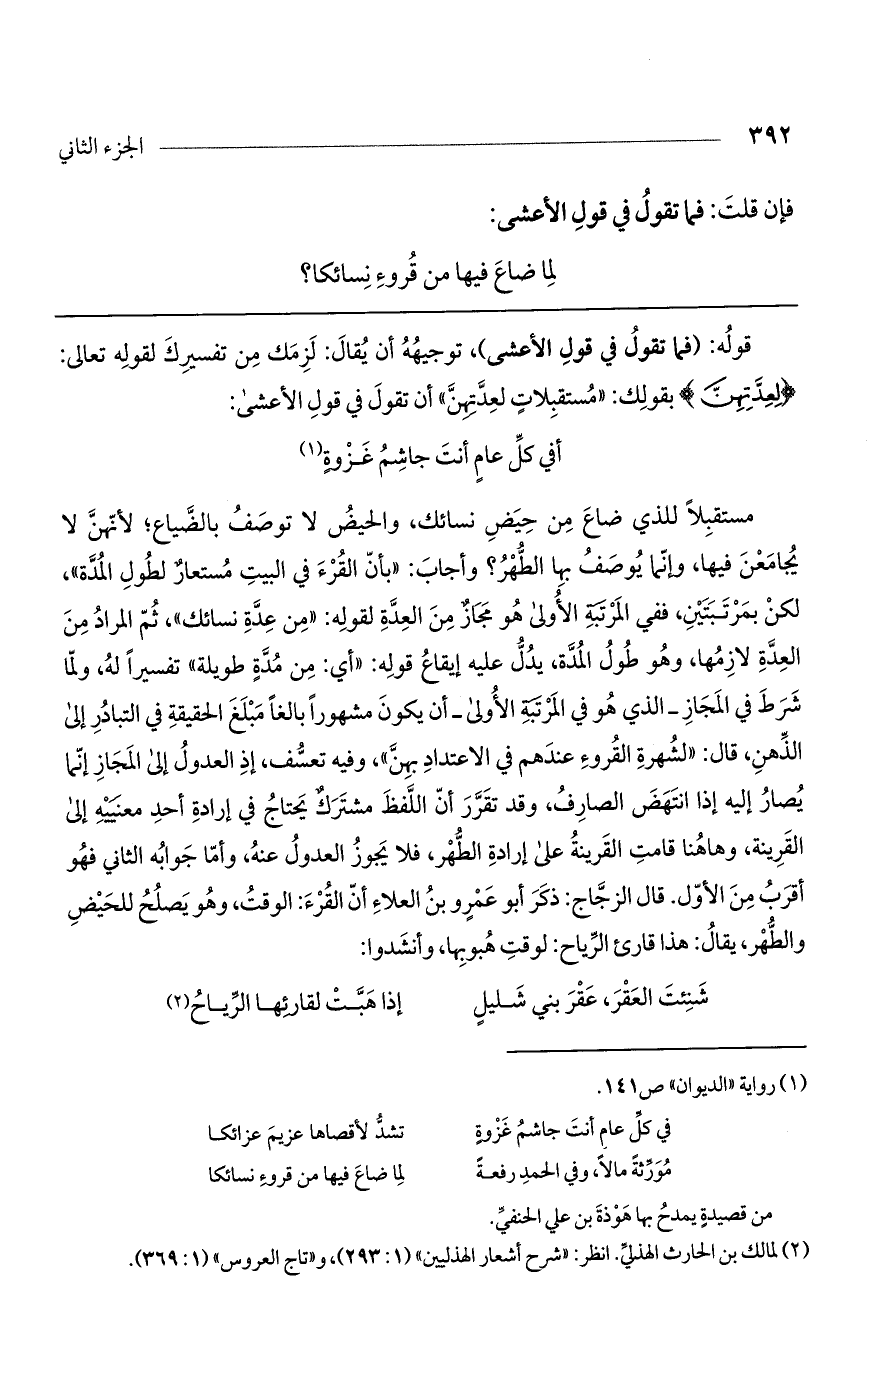 ٣٩٢ الجزء الثاني
فإن قلتَ: فما تقولُ في قولِ الأعشى:
لِما ضاعَ فيها من قُروءِ نِسائكا؟
قولُه: (فما تقولُ في قولِ الأعشى)، توجيهُهُ أن يُقالَ: لَزِمَك مِن تفسيرِكَ لقولِه تعالى:
﴿لِعِدَّتِهِنَّ﴾ بقولِك: «مُستقبِلاتٍ لعِدَّتِهِنَّ» أن تقولَ في قولِ الأعشىٰ:
أفي كلِّ عامٍ أنتَ جاشِمُ غَـزْوةٍ(١)
مستقبِلاً للذي ضاعَ مِن حِيَضِ نسائك، والحيضُ لا توصَفُ بالضَّياع؛ لأنهنَّ لا
يُجامَعْنَ فيها، وإنّما يُوصَفُ بها الطُّهْرُ؟ وأجابَ: «بأنّ القُرْءَ في البيتِ مُستعارٌ لطُولِ المُدَّة»،
لكنْ بمَرْتَبَتَيْنِ، ففي المَرْتَبَةِ الأُولىٰ هُو مَجَازٌ مِنَ العِدَّةِ لقولِه: «مِن عِدَّةِ نسائك»، ثُمّ المرادُ مِنَ
العِدَّةِ لازِمُها، وهُو طُولُ المُدَّة، يدُلُّ عليه إيقاعُ قولِه: «أي: مِن مُدَّةٍ طويلة» تفسيراً لهُ، ولمّا
شَرَطَ في المَجَازِ ـ الذي هُو في المَرْتَبَةِ الأُولىٰ ـ أن يكونَ مشهوراً بالغاً مَبْلَغَ الحقيقةِ في التبادُرِ إلىٰ
الذِّهنِ، قال: «لشُهرةِ القُروءِ عندَهم في الاعتدادِ بهِنَّ»، وفيه تعسُّف، إذِ العدولُ إلىٰ المَجَازِ إنّما
يُصارُ إليه إذا انتَهَضَ الصارِفُ، وقد تقرَّرَ أنّ اللَّفظَ مشتَرَكٌ يَحتاجُ في إرادةِ أحدِ معنيَيْهِ إلىٰ
القَرِينة، وهاهُنا قامتِ القَرينةُ علىٰ إرادةِ الطُّهْر، فلا يَجوزُ العدولُ عنهُ، وأمّا جوابُه الثاني فهُو
أقرَبُ مِنَ الأوّل. قال الزجَّاج: ذكَرَ أبو عَمْرِو بنُ العلاءِ أنّ القُرْءَ: الوقتُ، وهُو يَصلُحُ للحَيْضِ
والطُّهْر، يقالُ: هذا قارئ الرِّياح: لوقتِ هُبوبِها، وأنشَدوا:
شَنِئتَ العَقْرَ، عَقْرَ بني شَـليلٍ إذا هَبَّـتْ لقارئِهـا الرِّيـاحُ(٢)
(١) رواية «الديوان» ص١٤١.
في كلِّ عامٍ أنتَ جاشمُ غَزْوةٍ تشدُّ لأقصاها عزيمَ عزائكـا
مُوَرِّثةً مالاً، وفي الحمدِ رفعـةً لِما ضاعَ فيها من قروءِ نسائكا
من قصيدةٍ يمدحُ بها هَوْذةَ بن علي الحنفيِّ.
(٢) لمالك بن الحارث الهذليِّ. انظر: «شرح أشعار الهذليين» (١: ٢٩٣)، و«تاج العروس» (١: ٣٦٩).